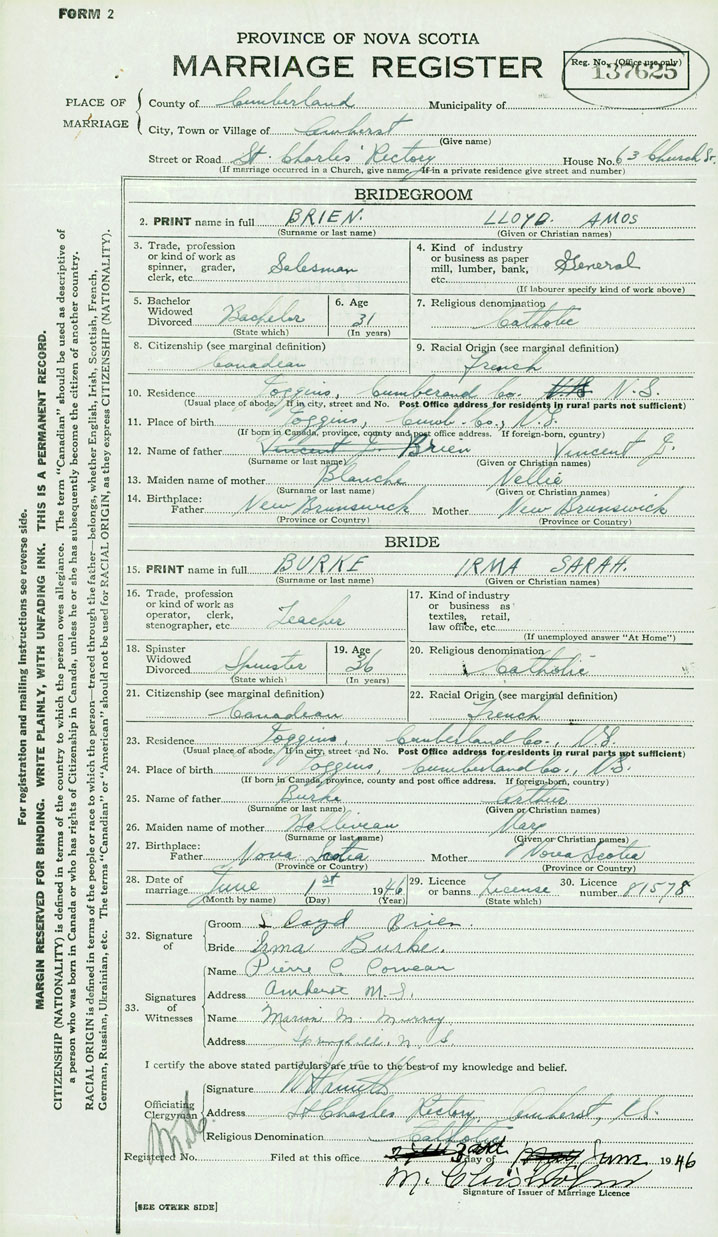 FORM 2
PROVINCE OF NOVA SCOTIA
MARRIAGE REGISTER
Reg. No. (Office use only)
137625
PLACE OF MARRIAGE
County of Cumberland Municipality of
City, Town or Village of Amherst
(Give name)
Street or Road St. Charles' Rectory House No. 63 Church St.
(If marriage occurred in a Church, give name. If in a private residence give street and number)
BRIDEGROOM
2. PRINT name in full BRIEN. LLOYD. AMOS
(Surname or last name) (Given or Christian names)
3. Trade, profession or kind of work as spinner, grader, clerk, etc. Salesman
4. Kind of industry or business as paper mill, lumber, bank, etc. General
(If labourer specify kind of work above)
5. Bachelor Widowed Divorced Bachelor
(State which)
6. Age 31
(In years)
7. Religious denomination Catholic
8. Citizenship (see marginal definition) Canadian
9. Racial Origin (see marginal definition) French
10. Residence Joggins, Cumberland Co. N.S.
(Usual place of abode. If in city, street and No. Post Office address for residents in rural parts not sufficient)
11. Place of birth Joggins, Cumb. Co., N.S.
(If born in Canada, province, county and post office address. If foreign-born, country)
12. Name of father Vincent J. Brien Vincent J.
(Surname or last name) (Given or Christian names)
13. Maiden name of mother Blanche Nellie
(Surname or last name) (Given or Christian names)
14. Birthplace: Father New Brunswick Mother New Brunswick
(Province or Country) (Province or Country)
BRIDE
15. PRINT name in full BURKE IRMA SARAH.
(Surname or last name) (Given or Christian names)
16. Trade, profession or kind of work as operator, clerk, stenographer, etc. Teacher
17. Kind of industry or business as textiles, retail, law office, etc.
(If unemployed answer "At Home")
18. Spinster Widowed Divorced Spinster
(State which)
19. Age 26
(In years)
20. Religious denomination Catholic
21. Citizenship (see marginal definition) Canadian
22. Racial Origin (see marginal definition) French
23. Residence Joggins, Cumberland Co., N.S.
(Usual place of abode. If in city, street and No. Post Office address for residents in rural parts not sufficient)
24. Place of birth Joggins, Cumberland Co., N.S.
(If born in Canada, province, county and post office address. If foreign-born, country)
25. Name of father Burke Arthur
(Surname or last name) (Given or Christian names)
26. Maiden name of mother Mary
(Surname or last name) (Given or Christian names)
27. Birthplace: Father Nova Scotia Mother Nova Scotia
(Province or Country) (Province or Country)
28. Date of marriage June 1st 1946
(Month by name) (Day) (Year)
29. Licence or banns License
(State which)
30. Licence number 81578
32. Signature of
Groom Lloyd Brien.
Bride Irma Burke.
33. Signatures of Witnesses
Name Pierre C.
Address Amherst N.S.
Name Marion M. Murray
Address Springhill, N. S.
I certify the above stated particulars are true to the best of my knowledge and belief.
Officiating Clergyman
Signature
Address St Charles Rectory, Amherst, N.S.
Religious Denomination Catholic
Registered No. Filed at this office day of June 1946
M. Chisholm
Signature of Issuer of Marriage Licence
[SEE OTHER SIDE]
For registration and mailing instructions see reverse side.
MARGIN RESERVED FOR BINDING. WRITE PLAINLY, WITH UNFADING INK. THIS IS A PERMANENT RECORD.
CITIZENSHIP (NATIONALITY) is defined in terms of the country to which the person owes allegiance. The term "Canadian" should be used as descriptive of
a person who was born in Canada or who has rights of Citizenship in Canada, unless he or she has subsequently become the citizen of another country.
RACIAL ORIGIN is defined in terms of the people or race to which the person—traced through the father—belongs, whether English, Irish, Scottish, French,
German, Russian, Ukrainian, etc. The terms "Canadian" or "American" should not be used for RACIAL ORIGIN, as they express CITIZENSHIP (NATIONALITY).